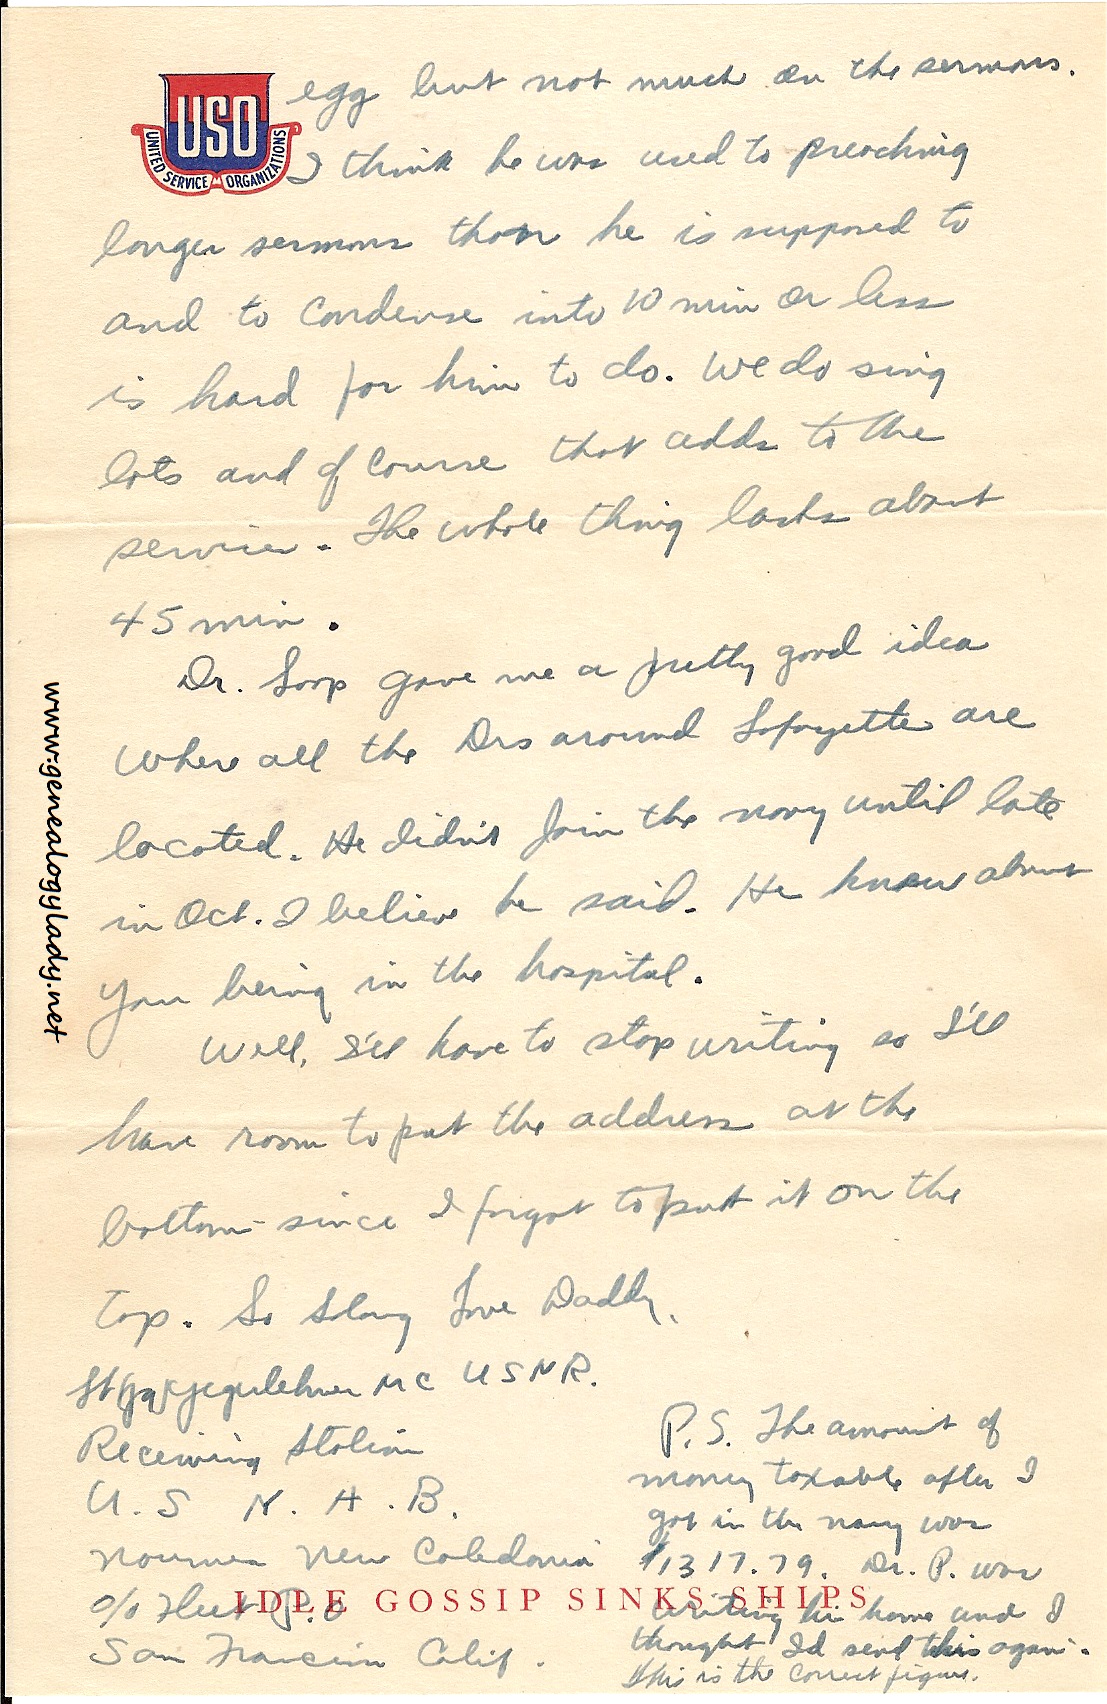 USO
UNITED SERVICE ORGANIZATIONS
egg but not much on the sermons.
I think he was used to preaching
longer sermons than he is supposed to
and to condense into 10 min or less
is hard for him to do. We do sing
lots and of course that adds to the
service. The whole thing lasts about
45 min.
Dr. Loop gave me a pretty good idea
where all the Drs around Lafayette are
located. He didn't join the navy until late
in Oct. I believe he said. He knew about
your being in the hospital.
Well, I'll have to stop writing so I'll
have room to put the address at the
bottom since I forgot to put it on the
top. So Long Love Daddy.
Lt MC USNR.
Receiving Station
U.S N.A.B.
Noumea New Caledonia
c/o Fleet P.O
San Francisco Calif.
P.S. The amount of
money taxable after I
got in the navy was
$1317.79. Dr. P. was
writing his home and I
thought I'd send this again.
This is the correct figure.
IDLE GOSSIP SINKS SHIPS
www.genealogylady.net